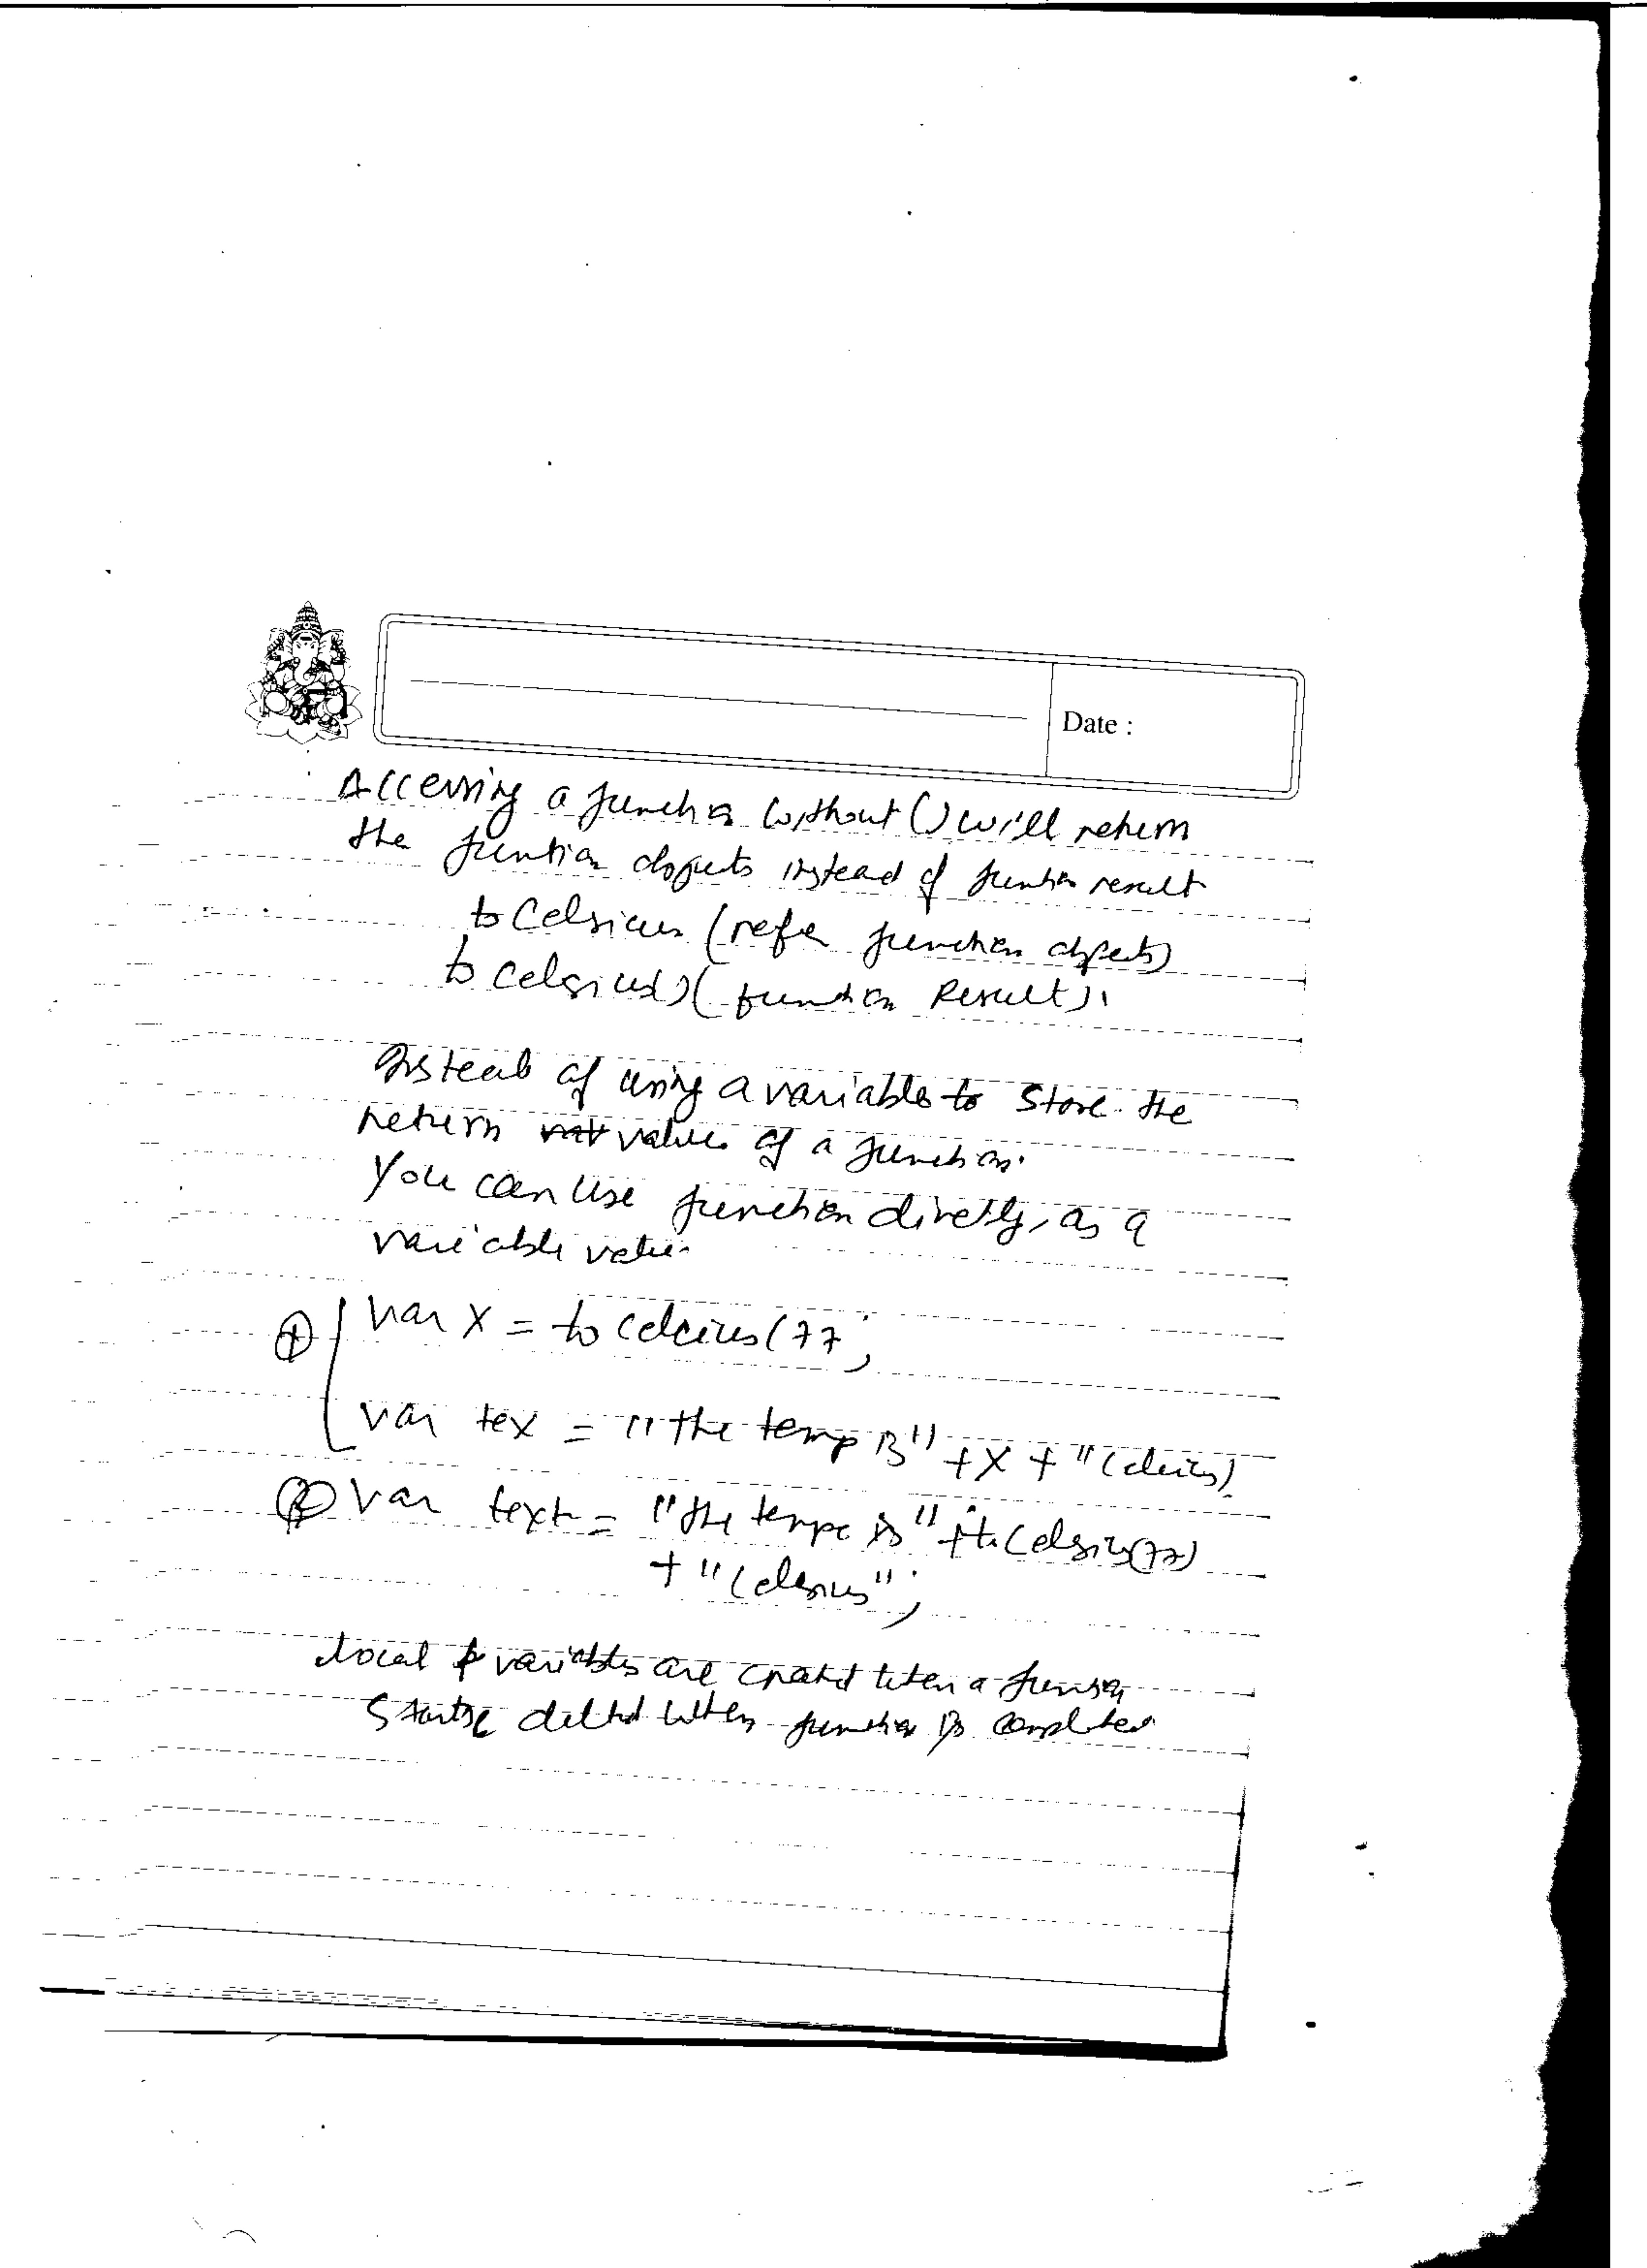 Date :
Accessing a function without () will return
the function objects instead of function result
to Celsius (refer function objects)
to Celsius() (function Result).
Instead of using a variable to store the
return values of a function.
You can use function directly, as a
variable value.
① var x = to Celcius(77;
var tex = "the temp is" + x + "Celcius)
② var text = "the tempe is" + to Celsius(77)
+ "Celsius";
Local variables are created when a function
starts deleted when function is completed